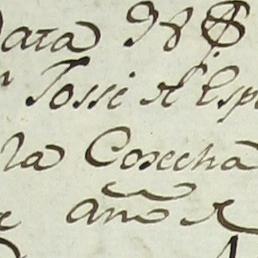 Data 98 $
Josse de Esp
la Cosecha
año de